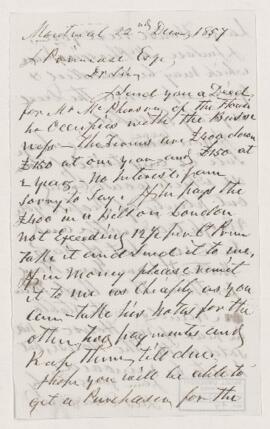 Montreal 22nd Decmr 1857
Esqr,
Dr Sir,
I send you a Deed
for Mr McPherson, of the House
he Occupies with the Busi
ness – the Terms are £400 down
£150 at one year and £150 at
2 years – No Interest I am
sorry to say. If he pays the
£400 in a Bill on London
not Exceeding 12½ per Ct Prm
take it and send it to me,
If in Money please remit
it to me as cheaply as you
can – take his Notes for the
other two payments and
Keep them till due.
I hope you will be able to
get a Purchaser for the